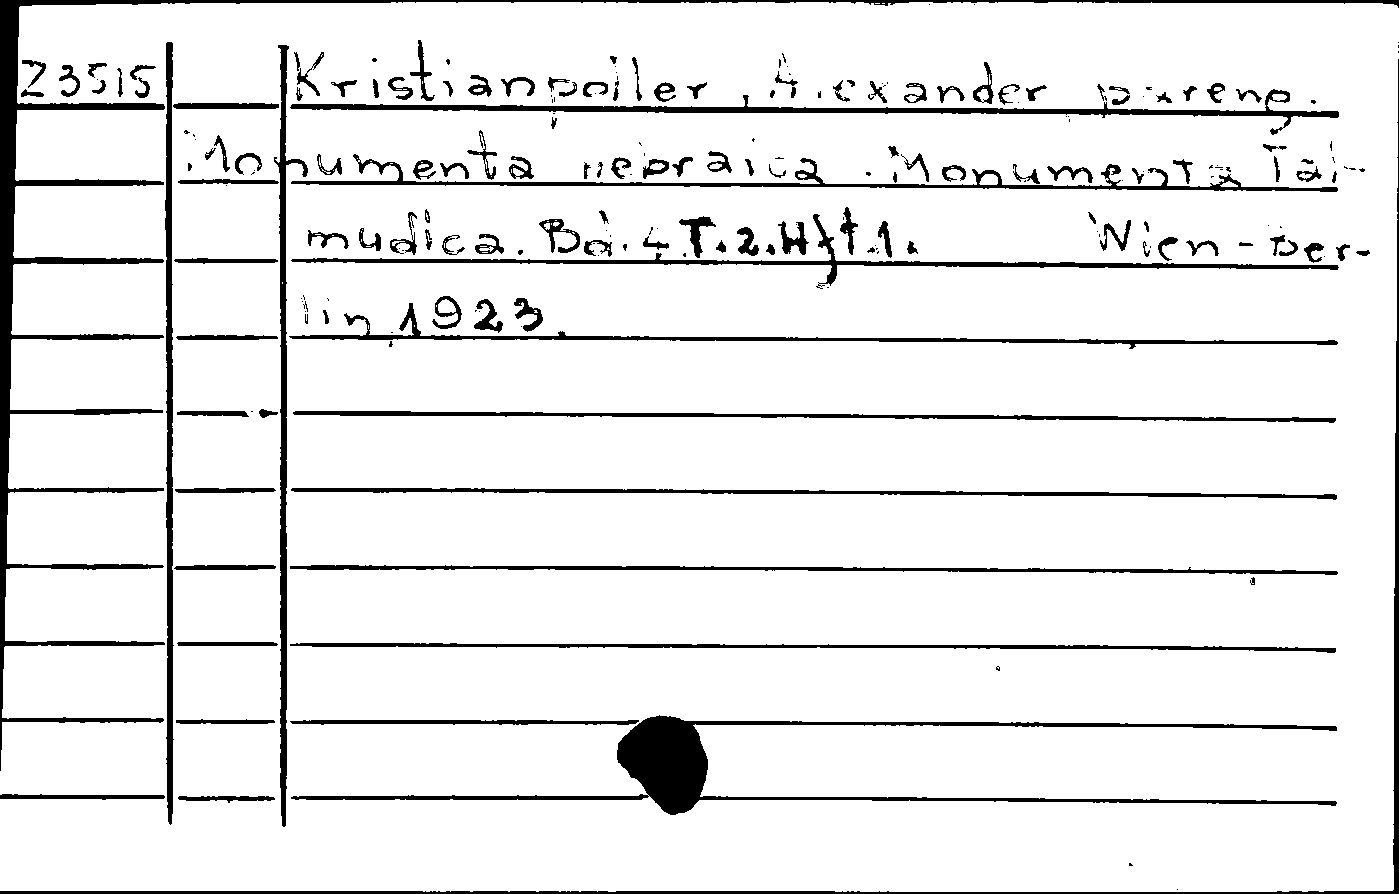 Z3515 Kristianpoller, Alexander păreng.
Monumenta hebraica. Monumenta Tal-
mudica. Bd. 4 T.2.Hft.1. Wien-Ber-
lin 1923.